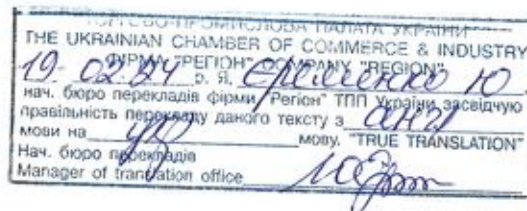 ТОРГОВО-ПРОМИСЛОВА ПАЛАТА УКРАЇНИ
THE UKRAINIAN CHAMBER OF COMMERCE & INDUSTRY
ФІРМА "РЕГІОН" COMPANY "REGION"
19. 02. 24 р. Я, Єременко Ю
нач. бюро перекладів фірми "Регіон" ТПП України засвідчую
правільність перекладу даного тексту з англ
мови на укр мову. "TRUE TRANSLATION"
Нач. бюро перекладів
Manager of translation office